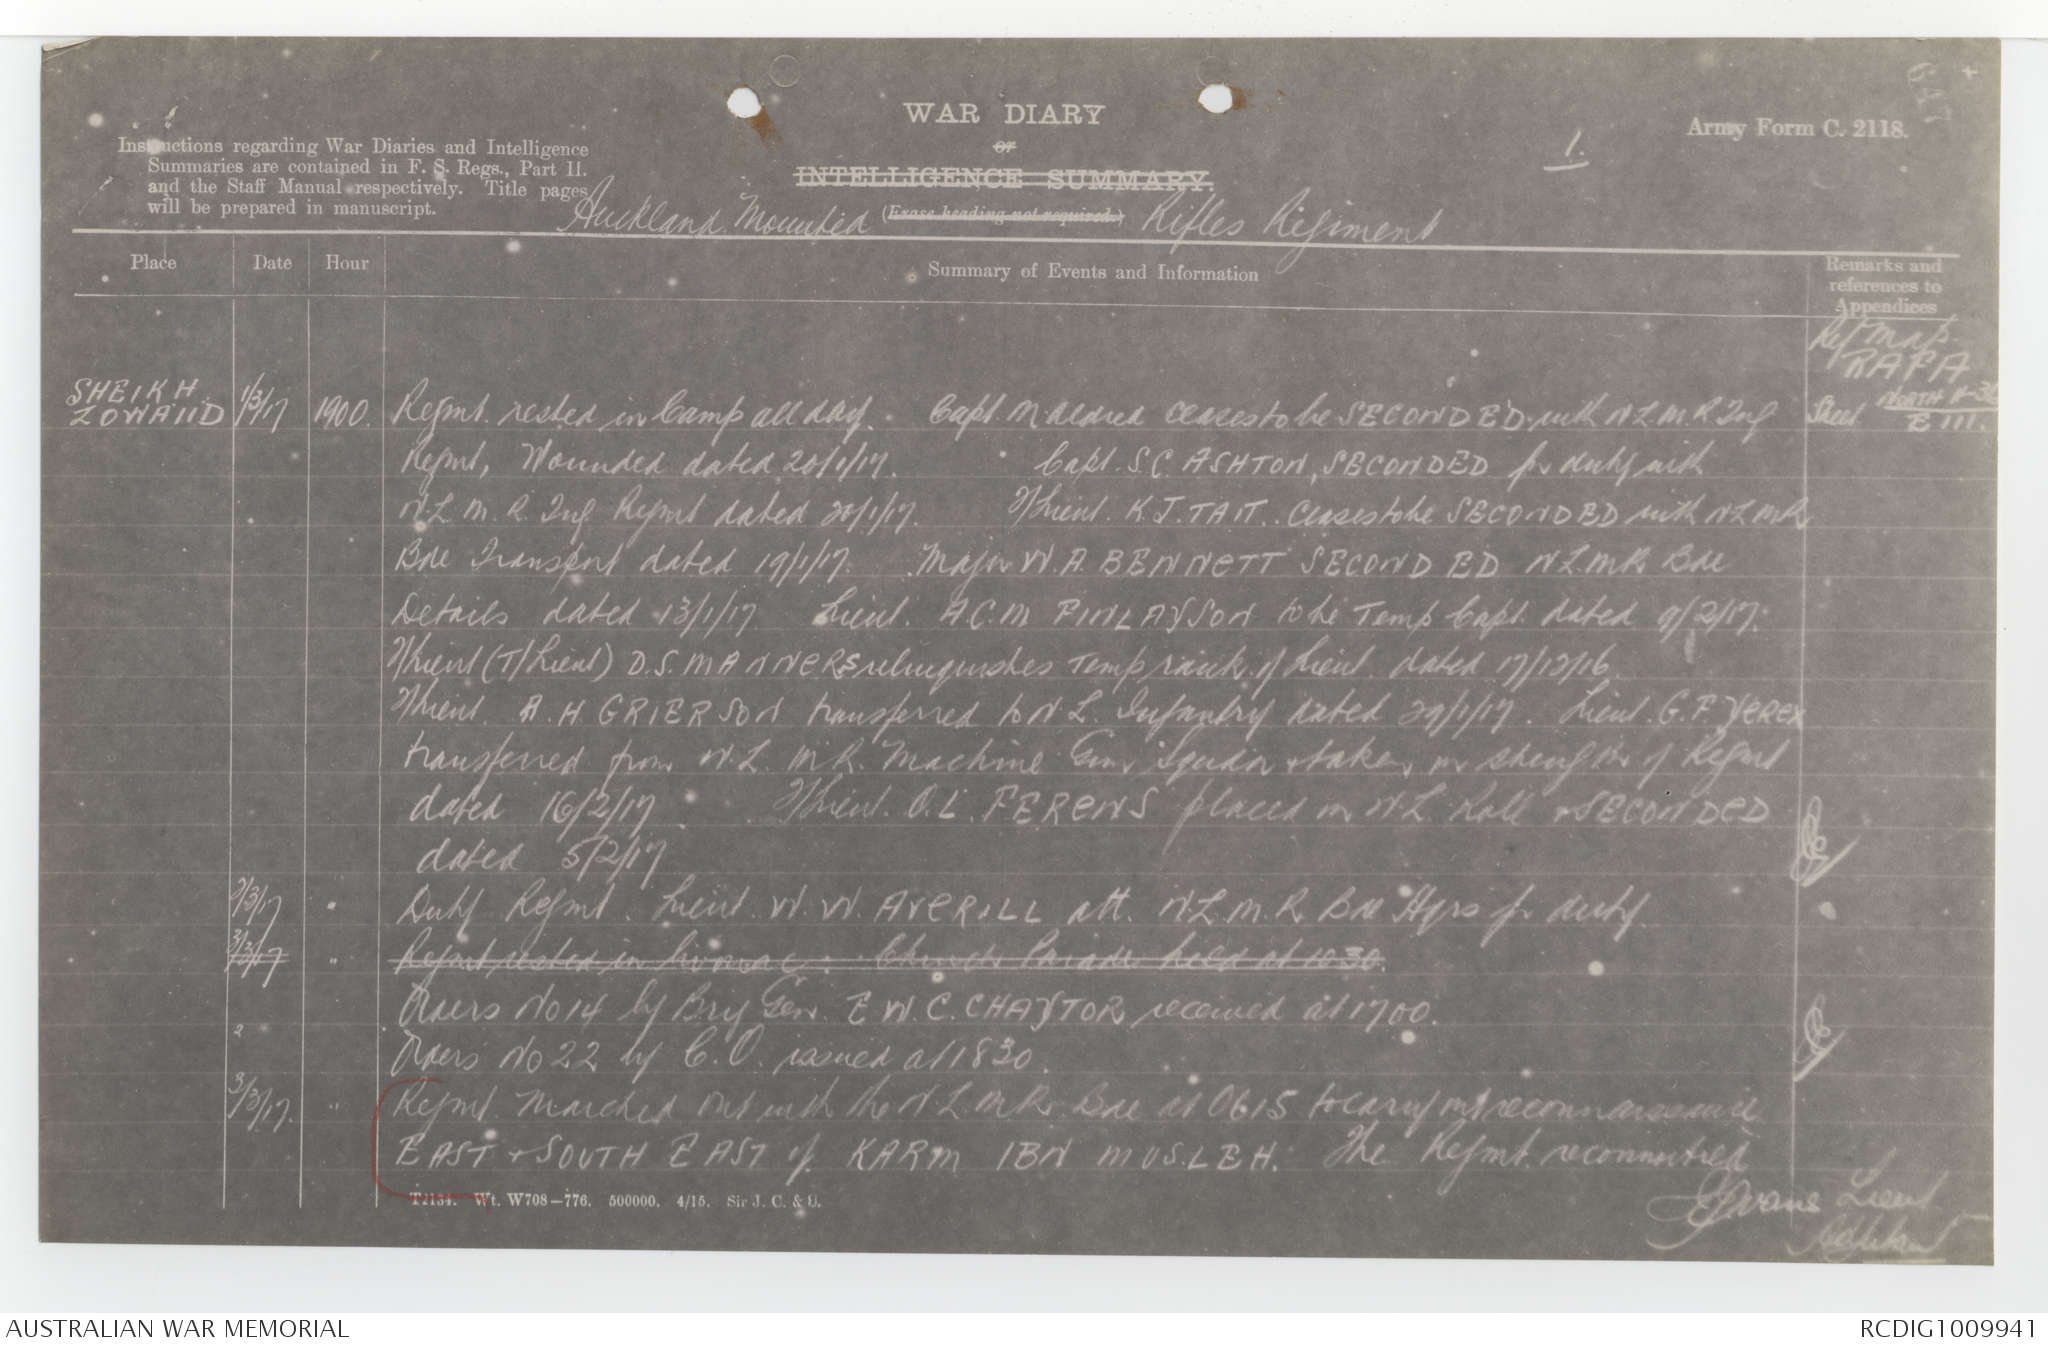 WAR DIARY
or
INTELLIGENCE SUMMARY.
(Erase heading not required.)
Army Form C. 2118.
1.
Instructions regarding War Diaries and Intelligence
Summaries are contained in F. S. Regs., Part II.
and the Staff Manual respectively. Title pages
will be prepared in manuscript.
Auckland Mounted Rifles Regiment
Place Date Hour Summary of Events and Information Remarks and references to Appendices
Ref Map.
RAFA
Sheet NORTH
E III.
SHEIKH ZOWAIID 1/3/17 1900. Regmt. rested in Camp all day. Capt M Aldred ceases to be SECONDED with N.Z.M.R. Trg
Regmt, Wounded dated 20/1/17. Capt. S.C. ASHTON, SECONDED for duty with
N.Z.M.R. Trg. Regmt dated 20/1/17. 2/Lieut. K.J. TAIT. ceases to be SECONDED with N.Z.M.R.
Bde Transport dated 19/1/17. Major W.A. BENNETT SECONDED N.Z.M.R. Bde
Details dated 13/1/17. Lieut. A.C.M. FINLAYSON to be Temp Capt. dated 9/2/17.
2/Lieut (T/Lieut) D.S. MANNERS relinquishes Temp rank of Lieut. dated 17/12/16.
2/Lieut. A.H GRIERSON transferred to N.Z. Infantry dated 29/1/17. Lieut. G.F. YEREX
transferred from N.Z. M.R. Machine Gun Squdn & taken on strength of Regmt
dated 16/2/17. 2/Lieut. O.L. FERENS placed on N.Z. Roll & SECONDED
dated 5/2/17
2/3/17 " Duty Regmt. Lieut. W.W AVERILL att. N.Z.M.R. Bde Hqrs for duty.
3/3/17 " Regmt rested in bivouac. Church Parade held at 1030.
Orders No 14 by Brig Gen. E.W.C. CHAYTOR received at 1700.
Orders No 22 by C.O. issued at 1830.
3/3/17. " Regmt. marched out with the N.Z.M.R. Bde at 0615 to carry out reconnaissance
EAST & SOUTH EAST of KARM IBN MUSLEH. The Regmt. reconnoitred
T2134. Wt. W708—776. 500000. 4/15. Sir J. C. & S.
Lieut
Adjutant
AUSTRALIAN WAR MEMORIAL
RCDIG1009941